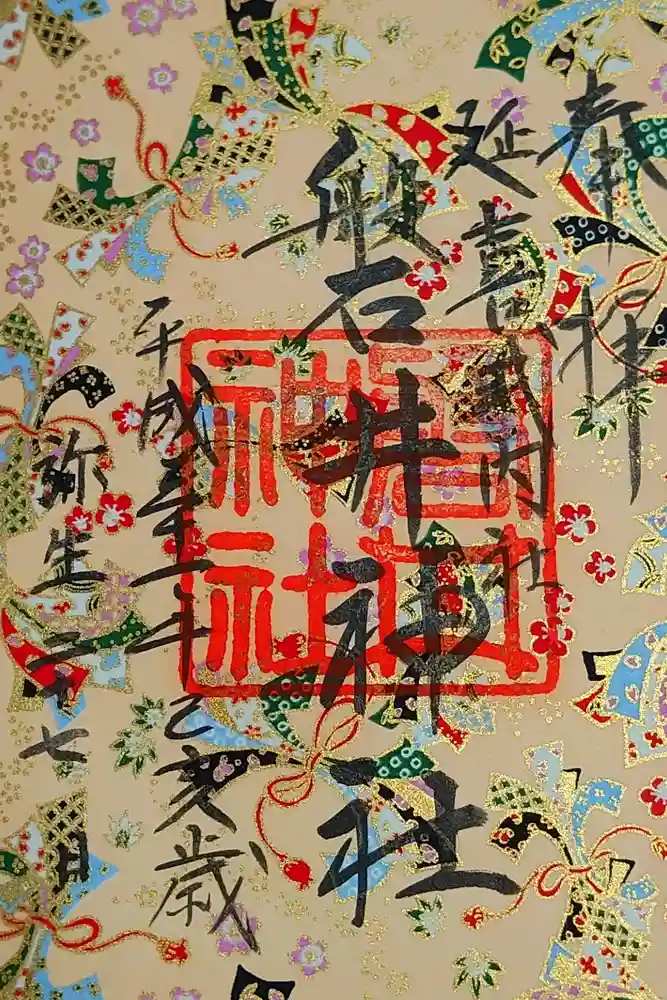 奉拝
延喜式内社
磐井神社
磐井神社
平成三十一年己亥歳
弥生二十七日